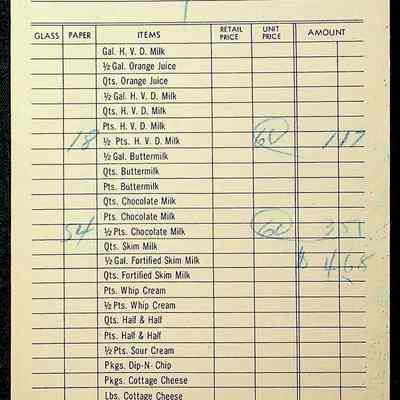 GLASS PAPER ITEMS RETAIL PRICE UNIT PRICE AMOUNT
Gal. H. V. D. Milk
½ Gal. Orange Juice
Qts. Orange Juice
½ Gal. H. V. D. Milk
Qts. H. V. D. Milk
Pts. H. V. D. Milk
18 ½ Pts. H. V. D. Milk 6½ 1 17
½ Gal. Buttermilk
Qts. Buttermilk
Pts. Buttermilk
Qts. Chocolate Milk
Pts. Chocolate Milk
54 ½ Pts. Chocolate Milk 6½ 3 51
Qts. Skim Milk
½ Gal. Fortified Skim Milk $ 4 68
Qts. Fortified Skim Milk
Pts. Whip Cream
½ Pts. Whip Cream
Qts. Half & Half
Pts. Half & Half
½ Pts. Sour Cream
Pkgs. Dip-N-Chip
Pkgs. Cottage Cheese
Lbs. Cottage Cheese